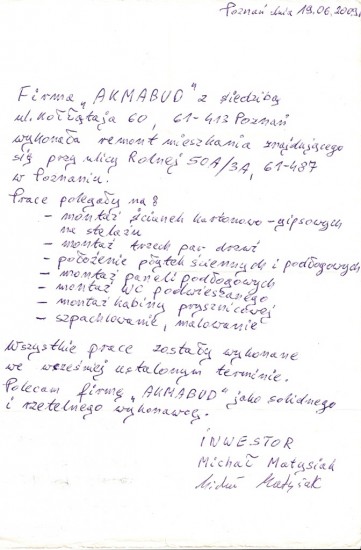 Poznań dnia 19.06.2009r.
Firma „AKMABUD" z siedzibą
ul. Kołłątaja 60, 61-413 Poznań
wykonała remont mieszkania znajdującego
się przy ulicy Rolnej 50A/3A, 61-487
w Poznaniu.
Prace polegały na:
- montaż ścianek kartonowo-gipsowych
na stelażu
- montaż trzech par drzwi
- położenie płytek ściennych i podłogowych
- montaż paneli podłogowych
- montaż WC podwieszanego
- montaż kabiny prysznicowej
- szpachlowanie, malowanie
Wszystkie prace zostały wykonane
we wcześniej ustalonym terminie.
Polecam firmę „AKMABUD" jako solidnego
i rzetelnego wykonawcę.
INWESTOR
Michał Matysiak
Michał Matysiak